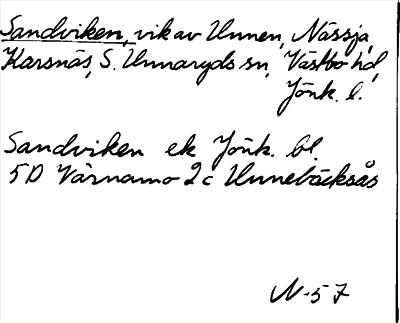 Sandviken, vik av Unnen, Nässja,
Karsnäs, S. Unnaryds sn, Västbo hd,
Jönk. l.
Sandviken ek Jönk. bl.
5D Värnamo 2c Unnebäcksås
N-57